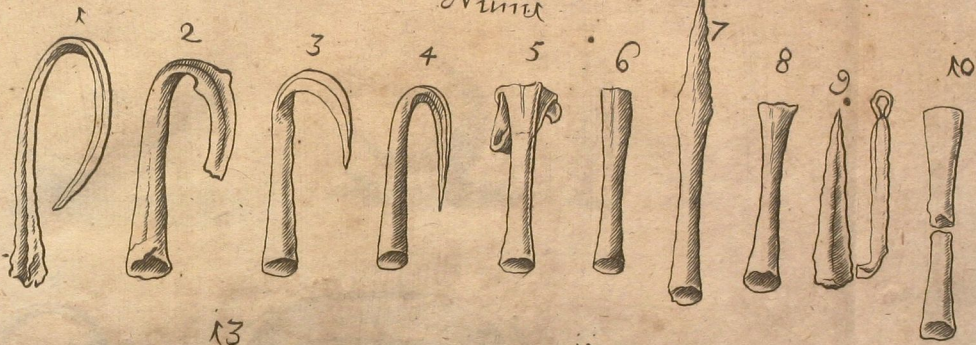 1 2 3 4 5 6 7 8 9 10
13